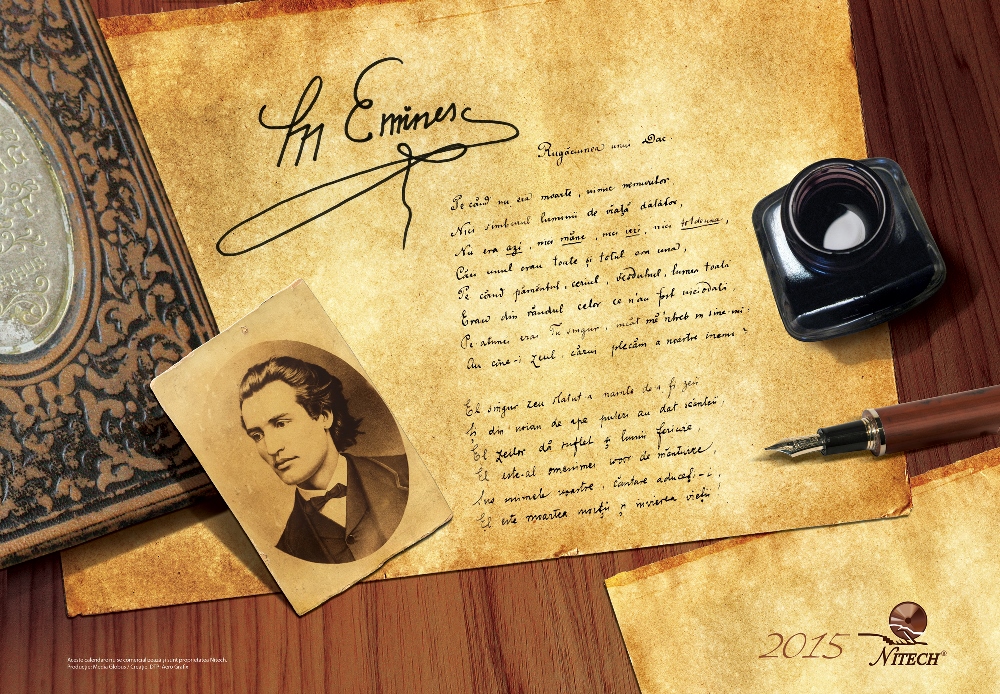 M Eminesc
Rugăciunea unui Dac
Pe când nu era moarte, nimic nemuritor,
Nici sâmburul luminii de viață dătător,
Nu era azi, nici mâne, nici ieri, nici totdeuna,
Căci unul erau toate și totul era una,
Pe când pământul, ceriul, văzduhul, lumea toată
Erau din rândul celor ce n'au fost niciodată,
Pe-atunci erai Tu singur, încât mă'ntreb în sine-mi:
Au cine-i zeul, cărui plecăm a noastre inemi?
El singur zeu stătut-a nainte de-a fi zeii
Și din noian de ape puteri au dat scânteii,
El zeilor dă suflet și lumii fericire,
El este-al omenimei isvor de mântuire,
Sus inimele voastre, cântare aduceți-i,
El este moartea morții și învierea vieții;
2015
NITECH®
Aceste calendare nu se comercializează și sunt proprietatea Nitech.
Producție: Media Globus / Creație, DTP: Aero Grafix